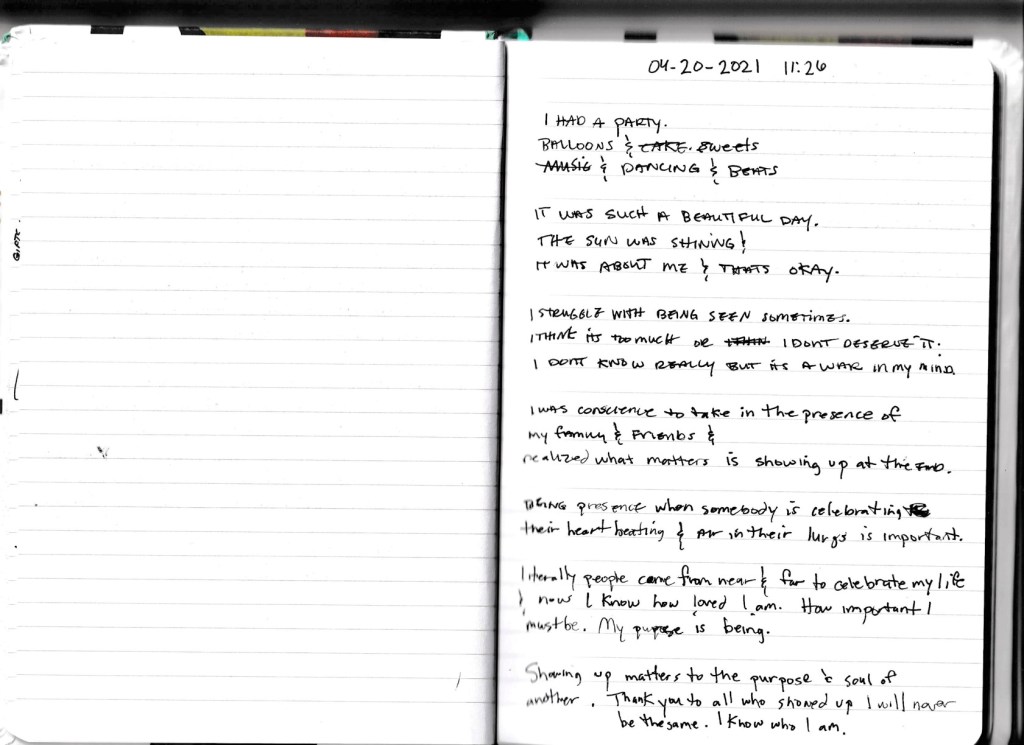 04-20-2021 11:26
I HAD A PARTY.
BALLOONS & CAKE. Sweets
MUSIC & DANCING & BEATS
IT WAS SUCH A BEAUTIFUL DAY.
THE SUN WAS SHINING &
IT WAS ABOUT ME & THATS OKAY.
I STRUGGLE WITH BEING SEEN SOMETIMES.
I THINK ITS too much or THAN I DONT DESERVE IT.
I DONT KNOW REALLY BUT ITS A WAR in my MIND.
I was conscience to take in the presence of
my family & FRIENDS &
realized what matters is showing up at the END.
BEING presence when somebody is celebrating
their heart beating & AIR in their lungs is important.
literally people came from near & far to celebrate my life
& now I know how loved I am. How important I
must be. My pupose is being.
Showing up matters to the purpose & soul of
another. Thank you to all who showed up I will never
be the same. I know who I am.